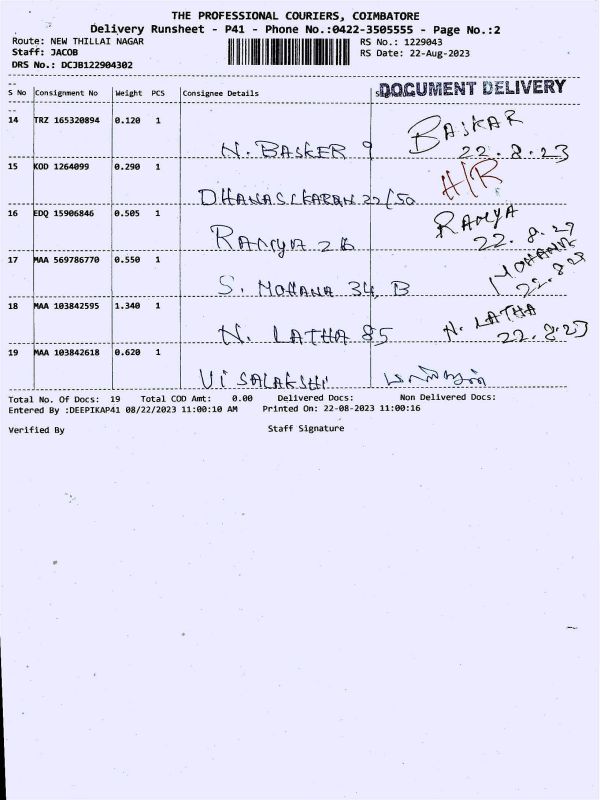 THE PROFESSIONAL COURIERS, COIMBATORE
Delivery Runsheet - P41 - Phone No.:0422-3505555 - Page No.:2
Route: NEW THILLAI NAGAR RS No.: 1229043
Staff: JACOB RS Date: 22-Aug-2023
DRS No.: DCJB122904302
DOCUMENT DELIVERY
S No Consignment No Weight PCS Consignee Details
14 TRZ 165320894 0.120 1
N. BASKER 9 BASKAR
22.8.23
15 KOD 1264099 0.290 1
22/50 H/R
16 EDQ 15906846 0.505 1
RAMYA 2B RAMYA
22.8.23
17 MAA 569786770 0.550 1
S. MOHANA 34, B MOHANA
22.8.23
18 MAA 103842595 1.340 1
N. LATHA 85 N. LATHA
22.8.23
19 MAA 103842618 0.620 1
VISALAKSHI
Total No. Of Docs: 19 Total COD Amt: 0.00 Delivered Docs: Non Delivered Docs:
Entered By :DEEPIKAP41 08/22/2023 11:00:10 AM Printed On: 22-08-2023 11:00:16
Verified By Staff Signature